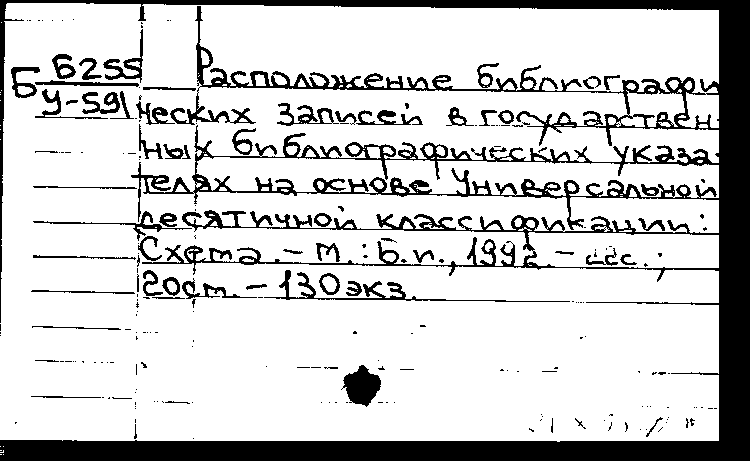 Б Б255
У-591
Расположение библиографи
ческих записей в государствен-
ных библиографических указа-
телях на основе Универсальной
десятичной классификации:
Схема. - М.: Б.и., 1992. -
20см. - 130экз.